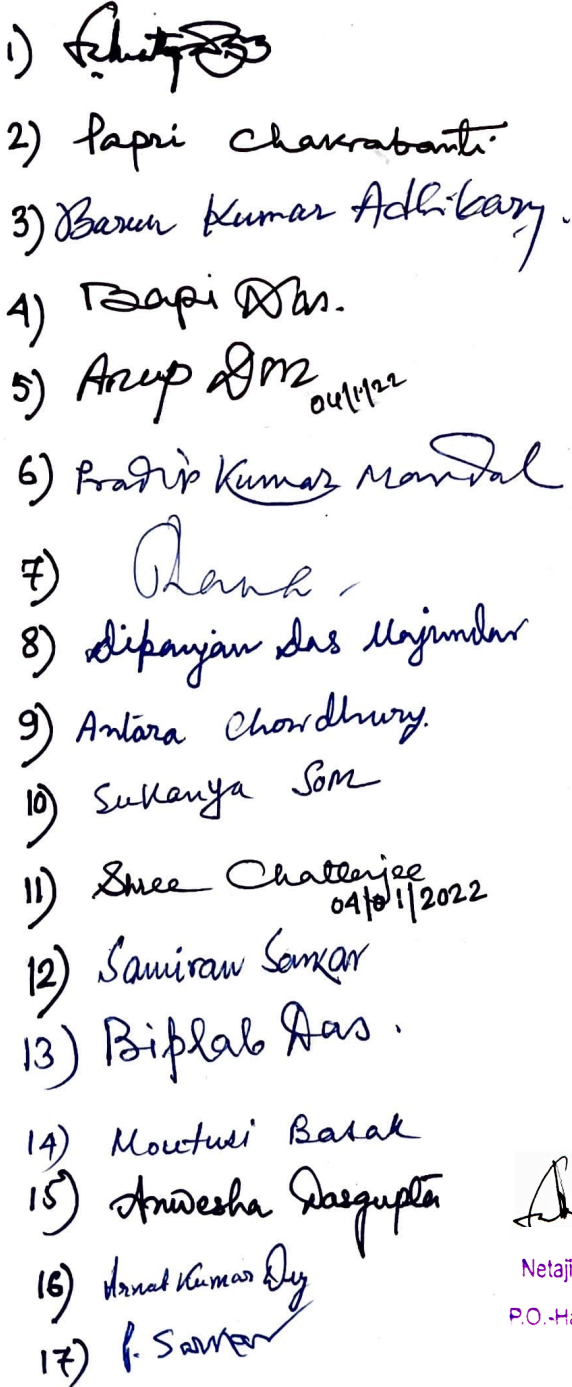 1)
2) Papri Chakrabarti
3) Barun Kumar Adhikary.
4) Bapi Das.
5) Arup Das 04/1/22
6) Pradip Kumar Mandal
7)
8) dipanjan das Majumdar
9) Antara Chowdhury.
10) Sukanya Som
11) Shree Chatterjee
04/01/2022
12) Samiran Sarkar
13) Biplab Das.
14) Moutusi Basak
15) Anwesha Dasgupta
Netaji
16) Kumar Dey
P.O.-Ha
17) P. Sarkar